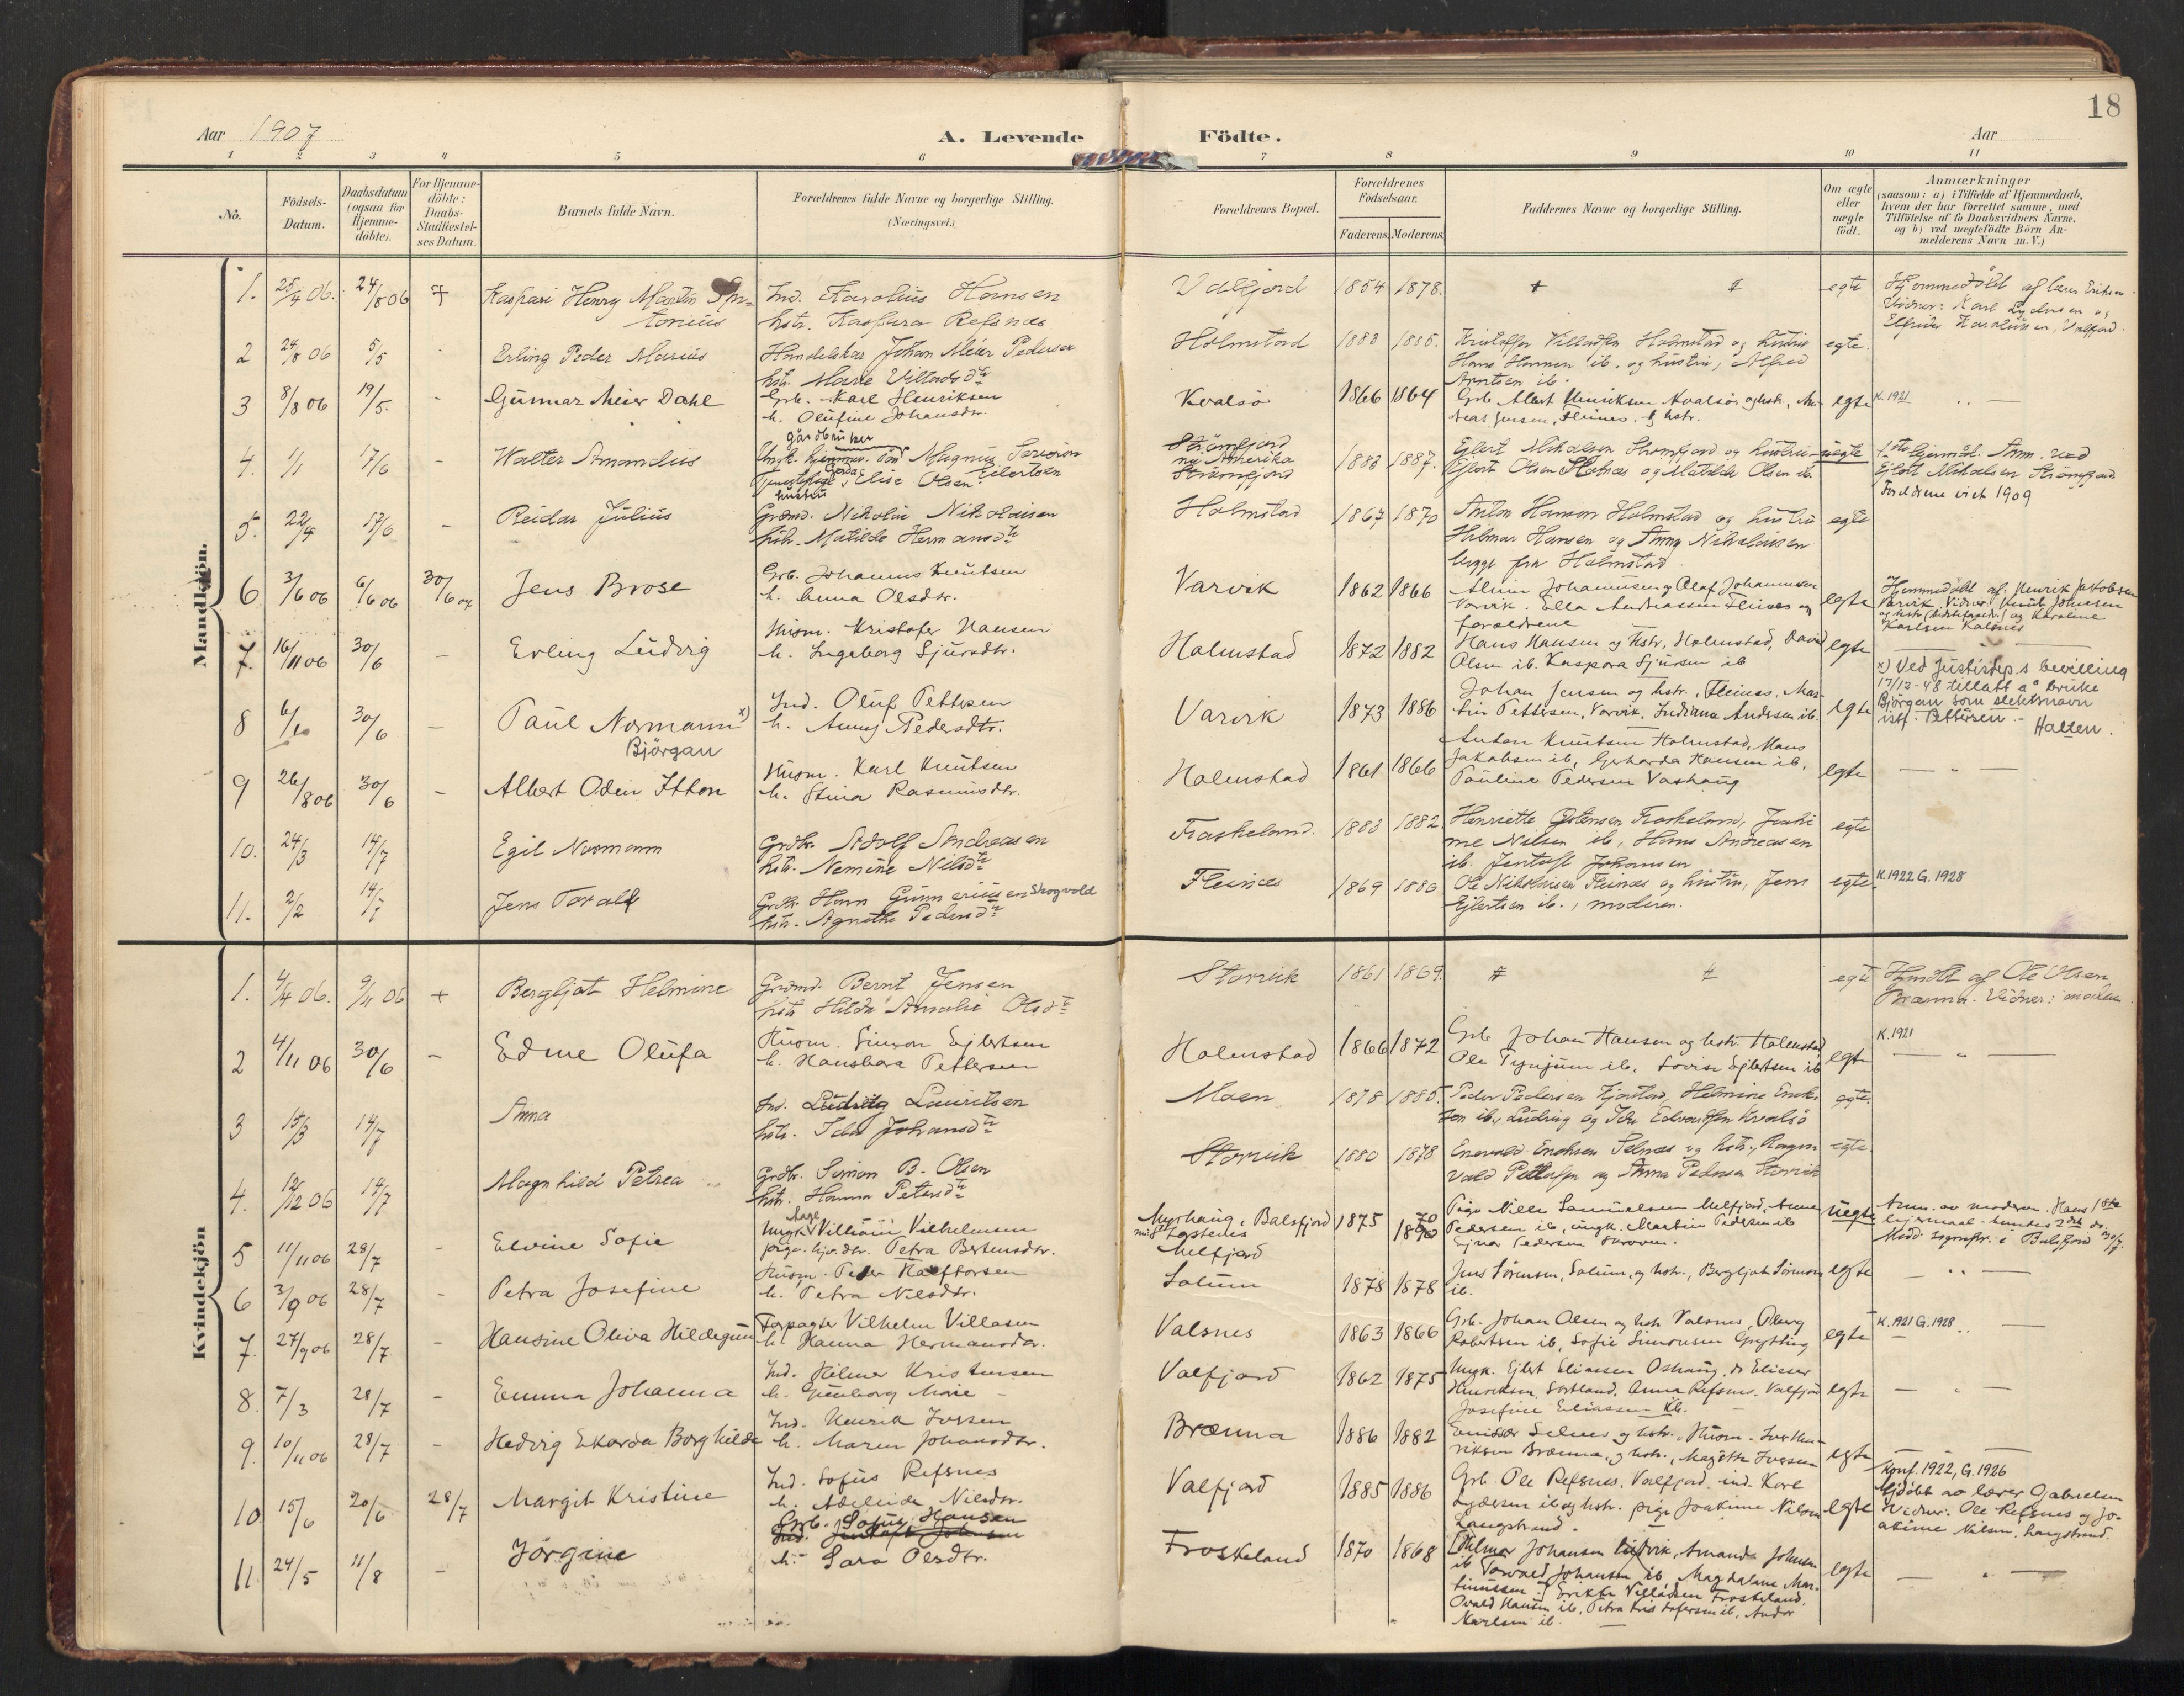 18
Aar 1907
A. Levende Födte.
Aar
1 2 3 4 5 6 7 8 9 10 11
No.
Födsels-Datum.
Daabsdatum (ogsaa for Hjemme-döbte).
For Hjemme-döbte: Daabs-Stadfæstel-ses Datum.
Barnets fulde Navn.
Forældrenes fulde Navne og borgerlige Stilling.
(Næringsvei.)
Forældrenes Bopæl.
Forældrenes Födselsaar.
Faderens. Moderens.
Faddernes Navne og borgerlige Stilling.
Om ægte eller uægte födt.
Anmærkninger
(saasom: a) i Tilfælde af Hjemmedaab,
hvem der har forrettet samme, med
Tilföielse af to Daabsvidners Navne,
og b) ved uægtefödte Börn An-
melderens Navn m. V.)
Mandkjön.
1. 25/4 06. 24/8 06 + Kaspari Henry Martin
Ind. Karolius Hansen
hstr. Kaspara Refsnæs
Valfjord 1854 1878. egte
Hjemmedöbt af lærer Eriksen.
Vidner: Karl Lydersen og
Elfrida Karoliussen, Valfjord.
2 24/8 06 5/5 - Erling Peder Marius
Handelskar Johan Meier Pedersen
hstr. Marie Villadsdtr
Holmstad 1883 1885. Kristoffer Villadsen Holmstad og hustru
Hans Hansen ib. og hustru, Alfred
Arntsen ib.
egte.
3 8/8 06 19/5. - Gunnar Meier Dahl
Grb. Karl Henriksen
h. Olufine Johansdr.
Kvalsö 1866 1864 Grb. Albert Henriksen Kvalsör og hstr., An-
dreas Jensen, Fleines. & hstr.
egte K. 1921
4. 1/1 17/6 - Walter Amandus
gårdbruker
Magnus Severin
Gerda Elise Olsen Eilertsen
hustru
Strömfjord
nu Amerika
Strömfjord
1883 1887. Ejlert Mikalsen Strömfjord og hustru
Ejlert Olsen Stefnæs og Matilde Olsen ib.
uegte
1ste lejermål. Anm. ved
Ejlert Mikalsen Strömfjord.
Foreldrene viet 1909
5. 22/4 17/6 - Reidar Julius
Grdmd. Nikolai Nikolaisen
hstr. Matilde Hermansdtr
Holmstad 1867 1870 Anton Hansen Holmstad og hustru
Hilmar Hansen og Anny Nikolaisen
begge fra Holmstad
egte
6 3/6 06 6/6 06 30/6 07 Jens Brose
Grb. Johannes Knutsen
h. Anna Olsdtr.
Varvik 1862 1866 Almer Johannesen og Olaf Johannesen
Varvik. Ella Andreassen Fleines og
forældrene
egte
Hjemmedöbt af Henrik Jakobsen
Varvik. Vidner: Knut Johnsen
og Karoline
Karlsen Kalsnes
7. 16/11 06 30/6 - Erling Ludvig
Husm. Kristofer Hansen
h. Ingeborg Sjursdtr.
Holmstad 1872 1882 Hans Hansen og hstr, Holmstad, David
Olsen ib. Kaspara Sjursen ib
egte
8 6/1 30/6 - Paul Normann x)
Björgan
Ind. Oluf Pettersen
h. Anny Pedersdtr.
Varvik 1873 1886 Johan Jensen og hstr., Fleines. Mar-
tin Pettersen, Varvik, Indiana Andersen ib.
egte
x) Ved Justisdep.s bevilling
17/12-48 tillatt å bruke
Björgan som slektsnavn
istf. Pettersen. -
Halten.
9 26/8 06 30/6 - Albert Odin Itton
Husm. Karl Knutsen
h. Stina Rasmusdtr.
Holmstad 1861 1866 Anton Knutsen Holmstad, Hans
Jakobsen ib, Gerharda Hansen ib,
Pauline Pedersen Vashaug
egte
10. 24/3 14/7 Egil Normann
Grdbr. Adolf Andreasen
hstr. Nemine Nilsdtr
Froskeland. 1883 1882 Henriette Ostensen Froskeland, Joaki
me Nilsen ib, Hans Andreasen
ib. Jentoft Johansen
egte
11. 2/2 14/7 Jens Toralf
Grdbr. Hans Gunneriusen Skogvold
hstr. Agnethe Pedersdtr
Fleines 1869 1880 Ole Nikolaisen Fleines og hustru, Jens
Ejlertsen ib., moderen.
egte. K. 1922 G. 1928
Kvindekjön
1. 4/4 06. 9/11 06 + Bergljot Helmine
Grdmd. Bernt Jensen
hstr Hilda Amalie Olsdtr
Storvik 1861 1869. egte
Hjmdbt af Ole Olsen
Brænna. Vidner: moderen.
2 4/11 06 30/6 - Edme Olufa
Husm. Simon Ejlertsen
h. Hansbara Pettersen
Holmstad 1866 1872 Grb Johan Hansen og hstr. Holmstad
Ole Tynjum ib, Lovise Ejlertsen ib
egte K. 1921
3 15/3 14/7 Anna
Ind. Ludvig Lauritsen
hstr. Ida Johansdtr
Moen 1878 1885. Peder Pedersen Fjorstad, Helmine Erik-
sen ib, Ludvig og Ida Edvardsen Kvalsö
egte.
4. 12/12 06 14/7 Magnhild Petrea
Grdbr. Simon B. Olsen
hstr. Hanna Petersdtr
Storvik 1880 1878 Enevold Eriksen Selnæs og hstr., Ragn
vald Pettersen og Anna Pedersen Storvik
egte.
5 11/11 06 28/7 Elvine Sofie
Ungk. Aage Villiam Vilhelmsen
pige Petra Bertensdtr.
Myrhaug, Balsfjord
Melfjord
1875 1870 Pige Nille Samuelsen Melfjord, Anne
Pedersen ib, ungk. Martin Pedersen ib
Ejnar Pedersen
uegte
Anm. av moderen. Hans 1ste
leiermaal - hendes 2det do.
Medd. sognepr. i Balsfjord 30/7.
6 3/9 06 28/7 - Petra Josefine
Husm. Peder Hartorsen
h. Petra Nilsdtr.
Solum 1878 1878 Jens Sörensen, Solum, og hstr., Bergljot Sörensen
ib.
egte
7. 27/9 06 28/7 - Hansine Oliva Hildegun
Forpagter Vilhelm Villasen
h. Hanna Hermansdtr.
Valsnes 1863 1866 Grb. Johan Olsen og hstr Valsnes, Oberg
Robertsen ib, Sofie Simonsen Grytting
egte K. 1921 G. 1928
8. 7/3 28/7 - Emma Johanna
Ind. Hilmer Kristensen
h. Gunborg Marie -
Valfjord 1862 1875 Ungk. Ejlert Eliassen Oshaug, do Elieser
Henriksen, Sortland. Anna Refsnes. Valfjord
Josefine Eliassen ib.
egte
9. 10/11 06 28/7 - Hedvig Ekorda Borghilde
Ind. Henrik Iversen
h. Maren Johansdtr.
Brænna 1886 1882 Selnes og hstr., Husm. Iver Hen-
riksen Brænna, og hstr., Magette Iversen
egte
10 15/6 20/6 28/7 Margit Kristine
Ind. Sofus Refsnes
h. Adeleide Nilsdtr.
Valfjord 1885 1886 Grb. Ole Refsnes. Valfjord. ind. Karl
Lydersen ib og hstr. pige Joakime Nilsen
Langstrand.
egte
Konf. 1922, G. 1926
Hjdöbt av lærer Gabrielsen
Vidner: Ole Refsnes og Jo-
akime Nilsen, Langstrand.
11. 24/5 11/8 - Jörgine
Grb. Sofus Hansen
Ind. Jentoft Johnsen
h. Sara Olsdtr.
Froskeland 1870 1868 [Hilmar Johansen Lidvik, Amanda Johnsen
ib Torvald Johansen ib, Magdaline Mar-
tinussen.] Erikka Villadsen Froskeland,
Ovald Hansen ib, Petra Kristofersen ib, Andor
Karlsen ib.
egte